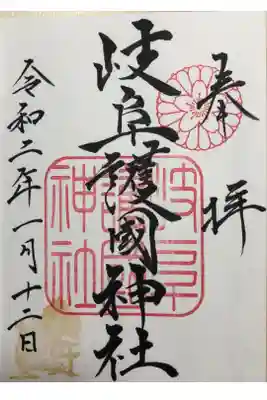 奉拝
岐阜護國神社
令和二年一月十二日
岐阜護國神社